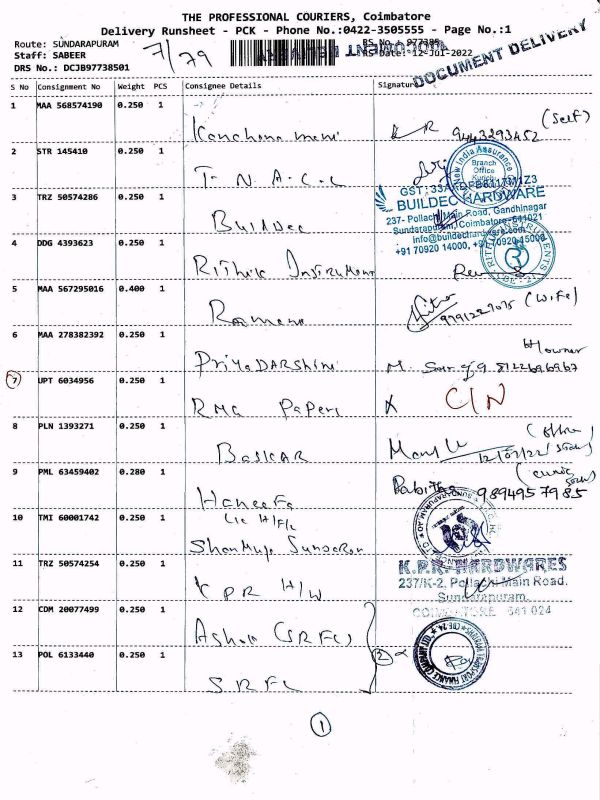 THE PROFESSIONAL COURIERS, Coimbatore
Delivery Runsheet - PCK - Phone No.:0422-3505555 - Page No.:1
Route: SUNDARAPURAM
Staff: SABEER
DRS No.: DCJB97738501
7/79
RS No.: 977385
DRS Date: 12-Jul-2022
DOCUMENT DELIVERY
S No Consignment No Weight PCS Consignee Details Signature
1 MAA 568574190 0.250 1
Kanchana mani 9443293452 (Self)
2 STR 145410 0.250 1
T. N. A. C. L
New India Assurance
Branch Office
3 TRZ 50574286 0.250 1
Buildec
BUILDEC HARDWARE
237- Pollachi Main Road, Gandhinagar
Sundarapuram, Coimbatore-641021
info@buildechardware.com
+91 70920 14000, +91 70920 15000
4 DDG 4393623 0.250 1
Rithik Instrument
RITHIK INSTRUMENTS
5 MAA 567295016 0.400 1
Ramana (Wife)
6 MAA 278382392 0.250 1
PriyaDARSHINI
owner
7 UPT 6034956 0.250 1
RMG Papers X C/N
8 PLN 1393271 0.250 1
BASKAR
12/07/22
9 PML 63459402 0.280 1
Haneefa
9894957985
10 TMI 60001742 0.250 1
Lic H/F/L
Shanmuga Sundaram
11 TRZ 50574254 0.250 1
K P R H/W
K.P.R. HARDWARES
237/K-2, Pollachi Main Road,
Sundarapuram,
COIMBATORE 641 024
12 CDM 20077499 0.250 1
Ashok (SRFL)
2
13 POL 6133440 0.250 1
SRFL
1